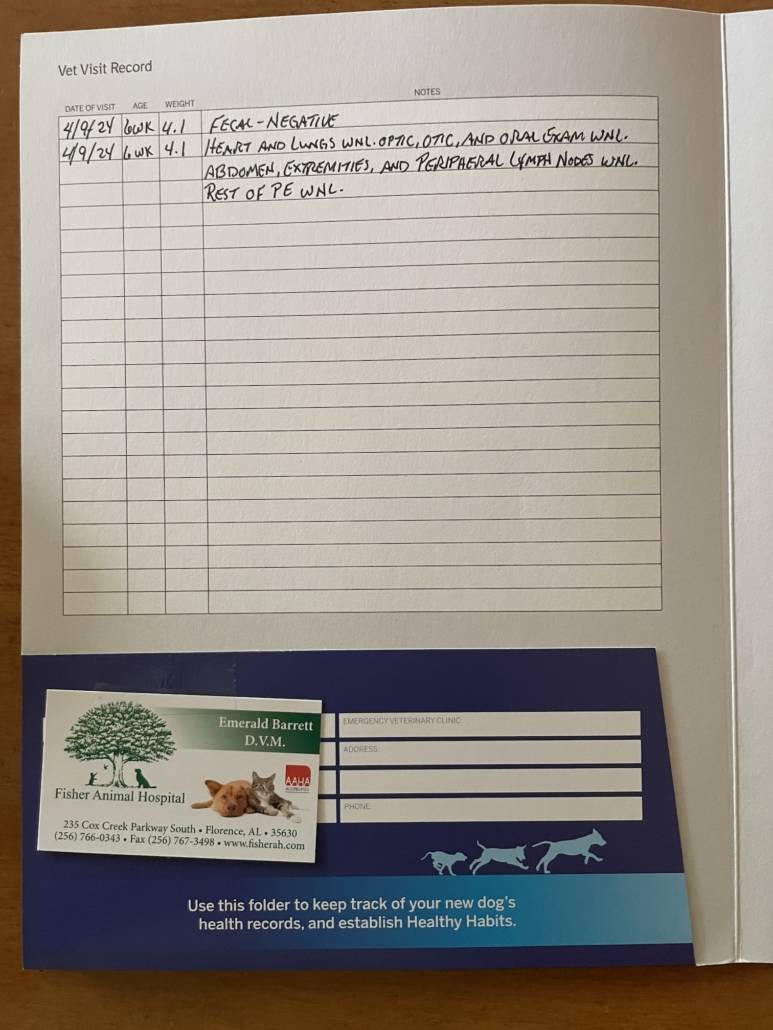 Vet Visit Record
DATE OF VISIT AGE WEIGHT NOTES
4/9/24 6WK 4.1 FECAL-NEGATIVE
4/9/24 6WK 4.1 HEART AND LUNGS WNL. OPTIC, OTIC, AND ORAL EXAM WNL.
ABDOMEN, EXTREMITIES, AND PERIPHERAL LYMPH NODES WNL.
REST OF PE WNL.
Emerald Barrett
D.V.M.
Fisher Animal Hospital
AAHA
ACCREDITED
235 Cox Creek Parkway South • Florence, AL • 35630
(256) 766-0343 • Fax (256) 767-3498 • www.fisherah.com
EMERGENCY VETERINARY CLINIC:
ADDRESS:
PHONE:
Use this folder to keep track of your new dog's
health records, and establish Healthy Habits.